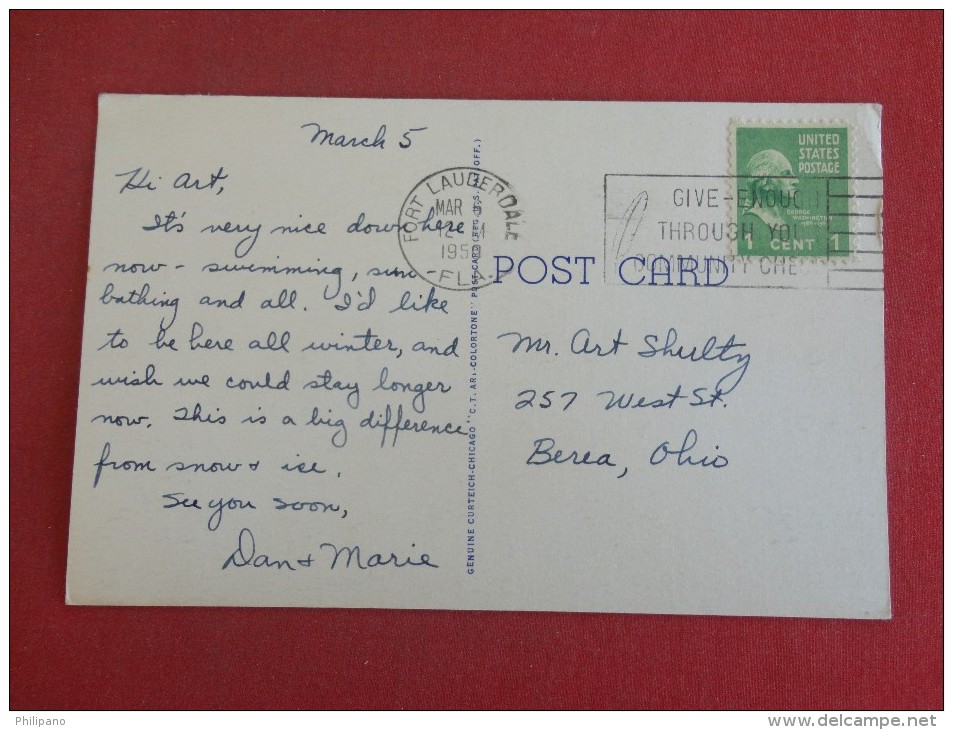 March 5
Hi Art,
It's very nice down here
now - swimming, sun
bathing and all. I'd like
to be here all winter, and
wish we could stay longer
now. This is a big difference
from snow & ice.
See you soon,
Dan & Marie
FORT LAUDERDALE
MAR
FLA.
GENUINE CURTEICH-CHICAGO "C.T. ART-COLORTONE" POST CARD (REG. U.S. PAT. OFF.)
POST CARD
GIVE-ENOUGH
THROUGH YOUR
COMMUNITY CHEST
UNITED
STATES
POSTAGE
GEORGE
WASHINGTON
1 CENT 1
Mr. Art Shulty
257 West St.
Berea, Ohio
Philipano
www.delcampe.net